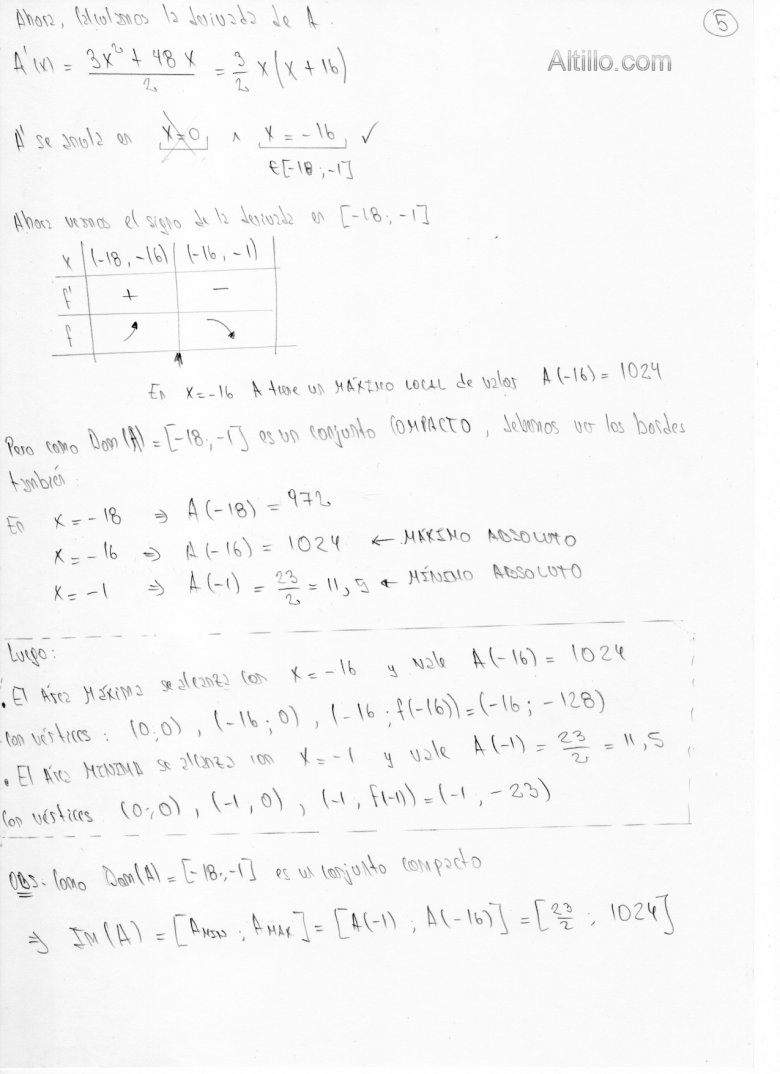 Ahora, calculamos la derivada de A.
5
Altillo.com
A'(x) = (3x² + 48x)/2 = 3/2 x(x + 16)
A' se anula en x=0 ∧ x = -16 ✓
∈[-18;-1]
Ahora veamos el signo de la derivada en [-18;-1]
x | (-18,-16) | (-16,-1)
f' | + | −
f | ↗ | ↘
En x=-16 A tiene un MÁXIMO LOCAL de valor A(-16) = 1024
Pero como Dom(A) = [-18;-1] es un conjunto COMPACTO, debemos ver los bordes
también:
En x = -18 ⇒ A(-18) = 972
x = -16 ⇒ A(-16) = 1024 ← MÁXIMO ABSOLUTO
x = -1 ⇒ A(-1) = 23/2 = 11,5 ← MÍNIMO ABSOLUTO
Luego:
• El Área Máxima se alcanza con x = -16 y vale A(-16) = 1024
con vértices: (0;0), (-16;0), (-16;f(-16)) = (-16;-128)
• El Área MINIMA se alcanza con x = -1 y vale A(-1) = 23/2 = 11,5
con vértices (0;0), (-1,0), (-1;f(-1)) = (-1,-23)
OBS. Como Dom(A) = [-18;-1] es un conjunto compacto
⇒ Im(A) = [A MIN ; A MAX] = [A(-1) ; A(-16)] = [23/2 ; 1024]